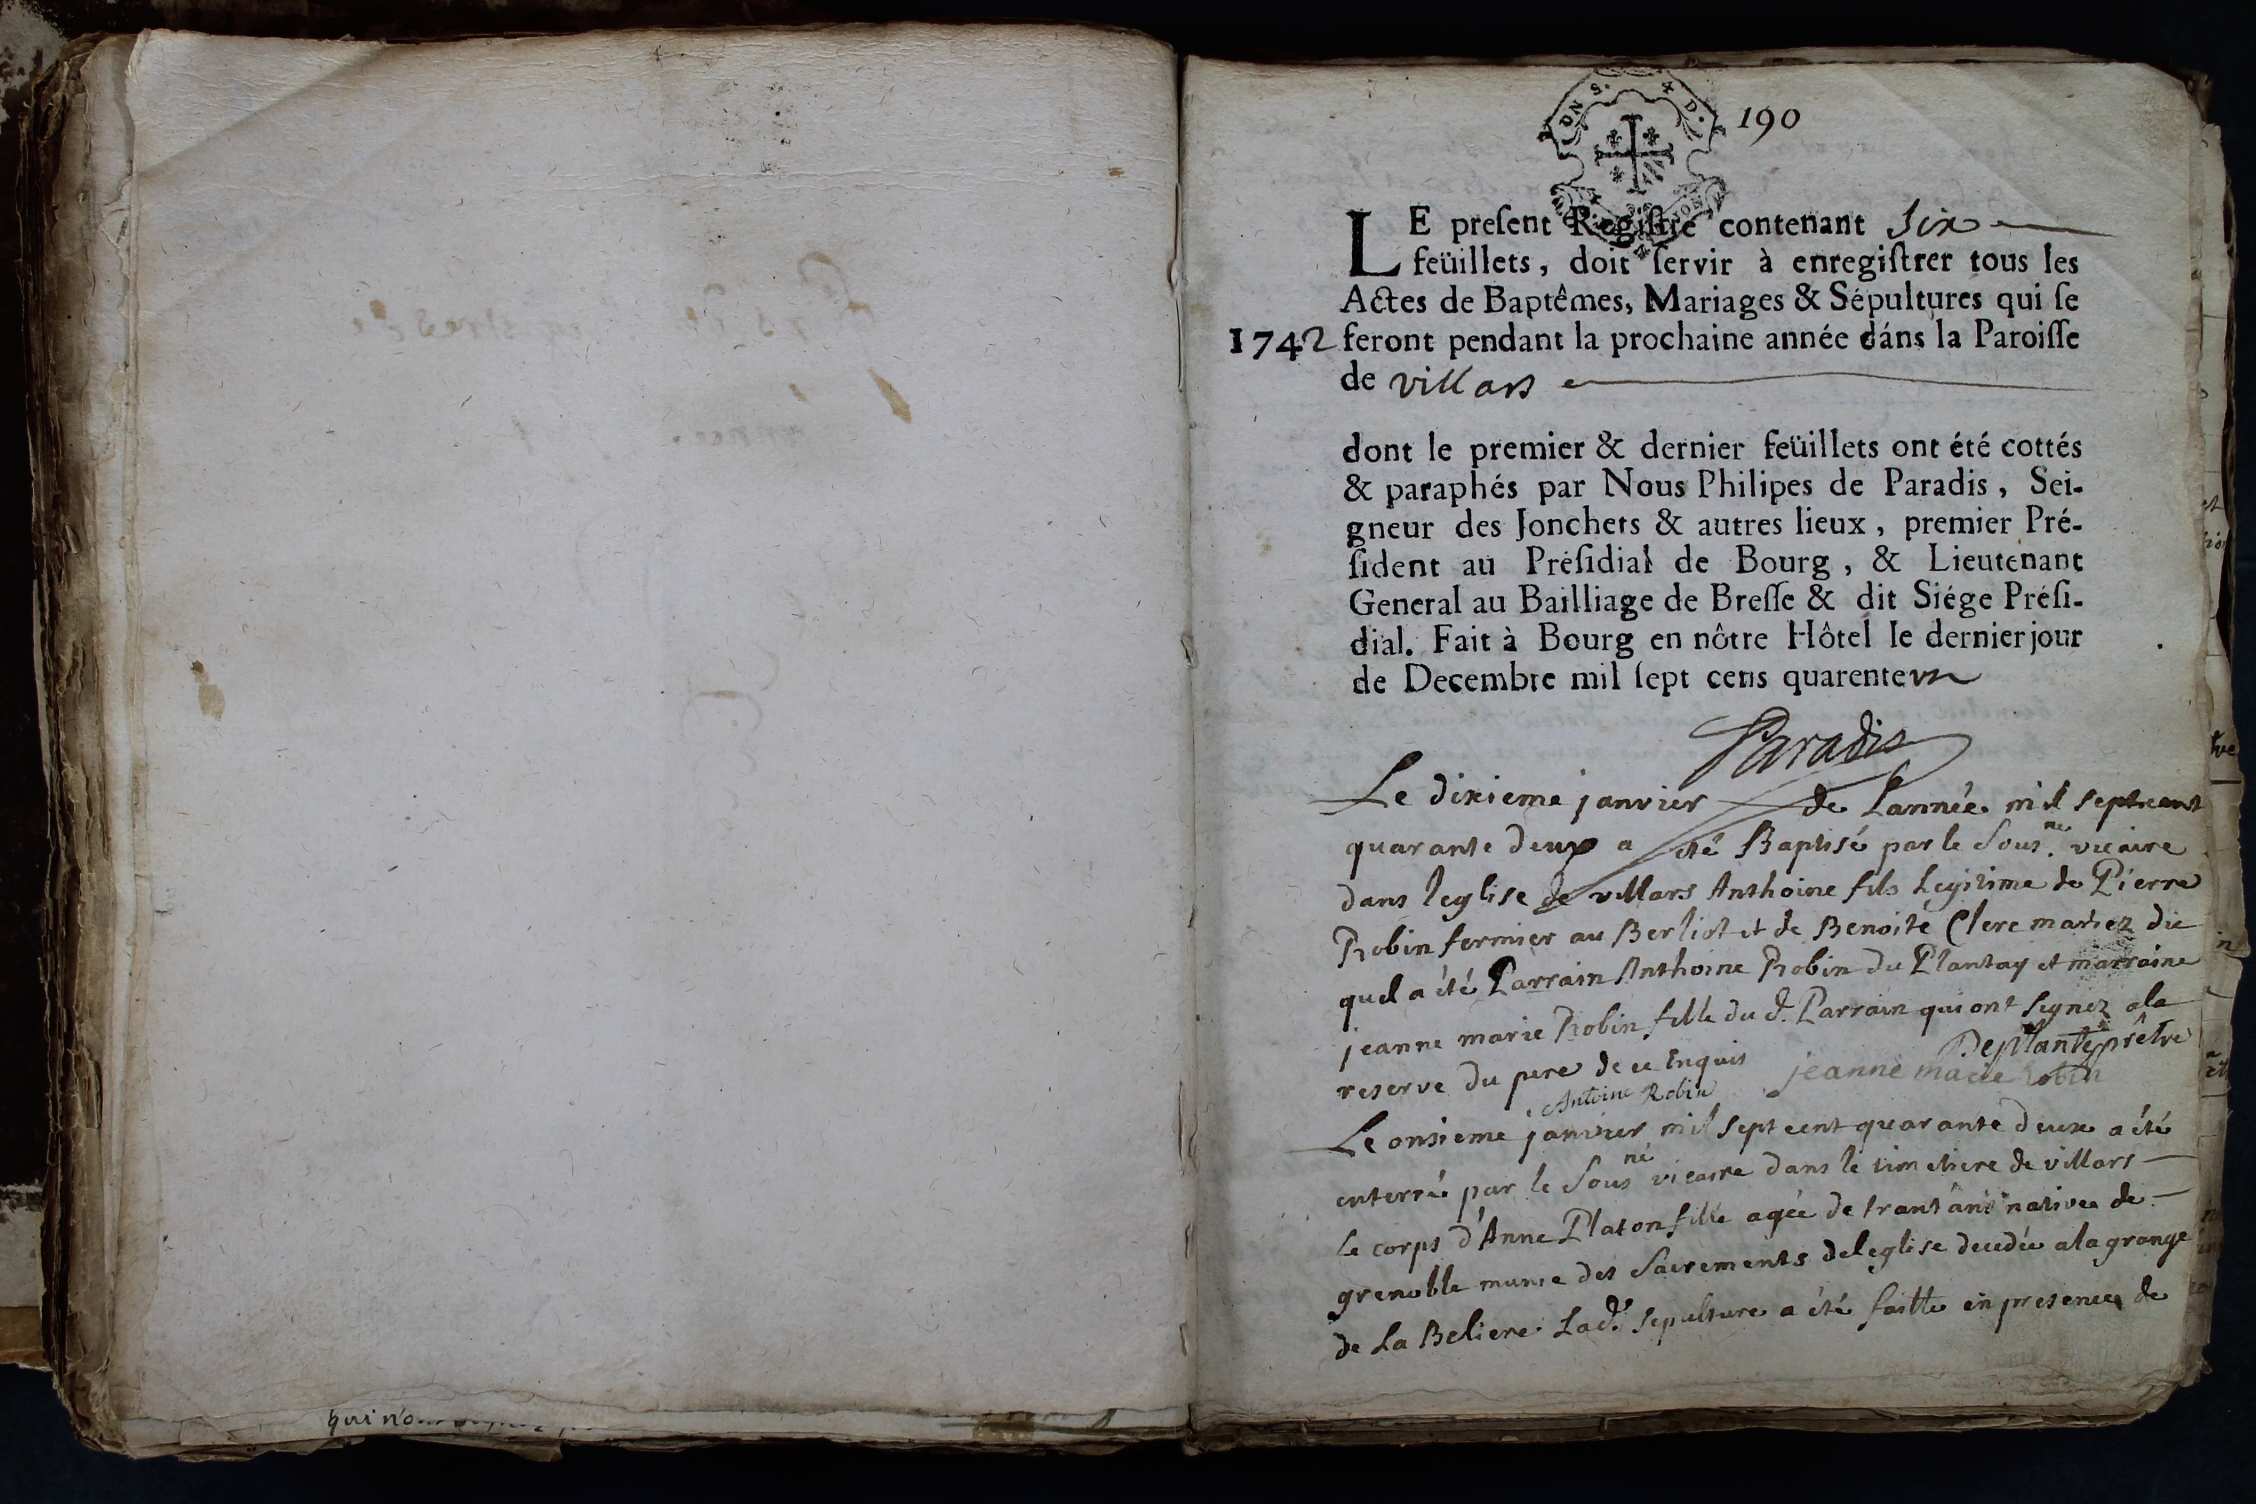 190
LE preſent Regiſtre contenant six
feüillets, doit ſervir à enregiſtrer tous les
Actes de Baptêmes, Mariages & Sépultures qui ſe
1742 feront pendant la prochaine année dáns la Paroiſſe
de villars
dont le premier & dernier feüillets ont été cottés
& paraphés par Nous Philipes de Paradis, Sei-
gneur des Jonchers & autres lieux, premier Pré-
ſident au Préſidial de Bourg, & Lieutenant
General au Bailliage de Breſſe & dit Siége Préſi-
dial. Fait à Bourg en nôtre Hôtel le dernier jour
de Decembre mil ſept cens quarente un
Paradis
Le dixieme janvier de Lannée mil septcent
quarante deux a eté Baptisé par le Sous.né vicaire
dans leglise de villars Anthoine fils Legitime de Pierre
Robin fermier au Berliot et de Benoite Clerc mariez du
quel a été Parrain Anthoine Robin du Plantay et marraine
jeanne marie Robin fille du d. Parrain qui ont signez ala
reserve du pere de ce Enquis
Deplante prêtre
jeanne marie Robin
Antoine Robin
Le onsieme janvier mil sept cent quarante deux a été
enterré par le Sousné vicaire dans le cimetiere de villars
le corps d'Anne Platon fille agée de trant ans native de
grenoble munie des Sacrements deleglise decedée ala grange
de La Beliere. Lad.e sepulture a été faitte en presence de
qui n'ont